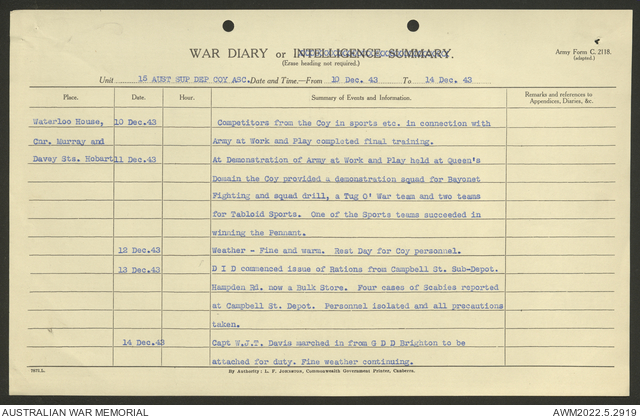 WAR DIARY or INTELLIGENCE SUMMARY.
(Erase heading not required.)
Army Form C. 2118.
(adapted.)
Unit 18 AUST SUP DEP COY ASC. Date and Time.—From 10 Dec. 43 To 14 Dec. 43
Place. Date. Hour. Summary of Events and Information. Remarks and references to Appendices, Diaries, &c.
Waterloo House, 10 Dec.43 Competitors from the Coy in sports etc. in connection with
Cnr. Murray and Army at Work and Play completed final training.
Davey Sts. Hobart 11 Dec.43 At Demonstration of Army at Work and Play held at Queen's
Domain the Coy provided a demonstration squad for Bayonet
Fighting and squad drill, a Tug O' War team and two teams
for Tabloid Sports. One of the Sports teams succeeded in
winning the Pennant.
12 Dec.43 Weather - Fine and warm. Rest Day for Coy personnel.
13 Dec.43 D I D commenced issue of Rations from Campbell St. Sub-Depot.
Hampden Rd. now a Bulk Store. Four cases of Scabies reported
at Campbell St. Depot. Personnel isolated and all precautions
taken.
14 Dec.43 Capt W.J.T. Davis marched in from G D D Brighton to be
attached for duty. Fine weather continuing.
By Authority: L. F. Johnston, Commonwealth Government Printer, Canberra.
AUSTRALIAN WAR MEMORIAL AWM2022.5.2919